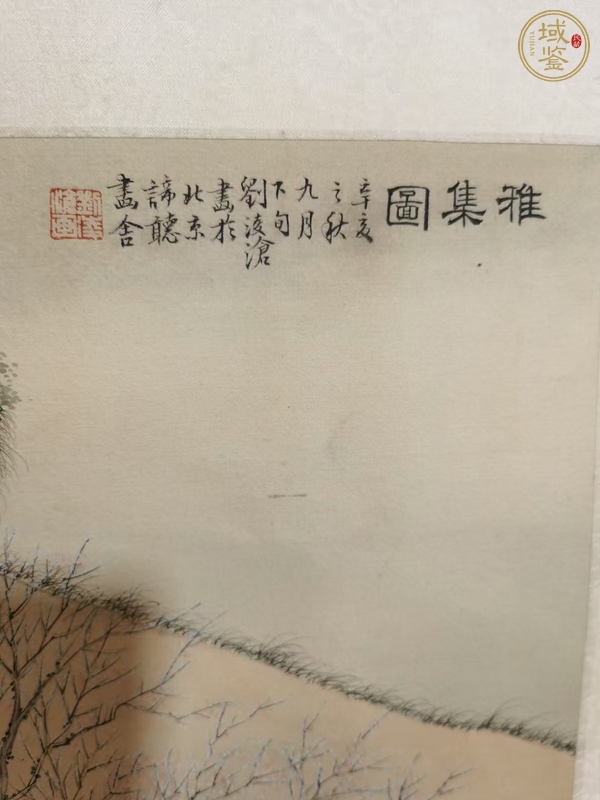 雅集圖
辛亥
之秋
九月
下旬
劉凌滄
畫於
北京
諦聽
畫舍
域鑒
YUJIAN